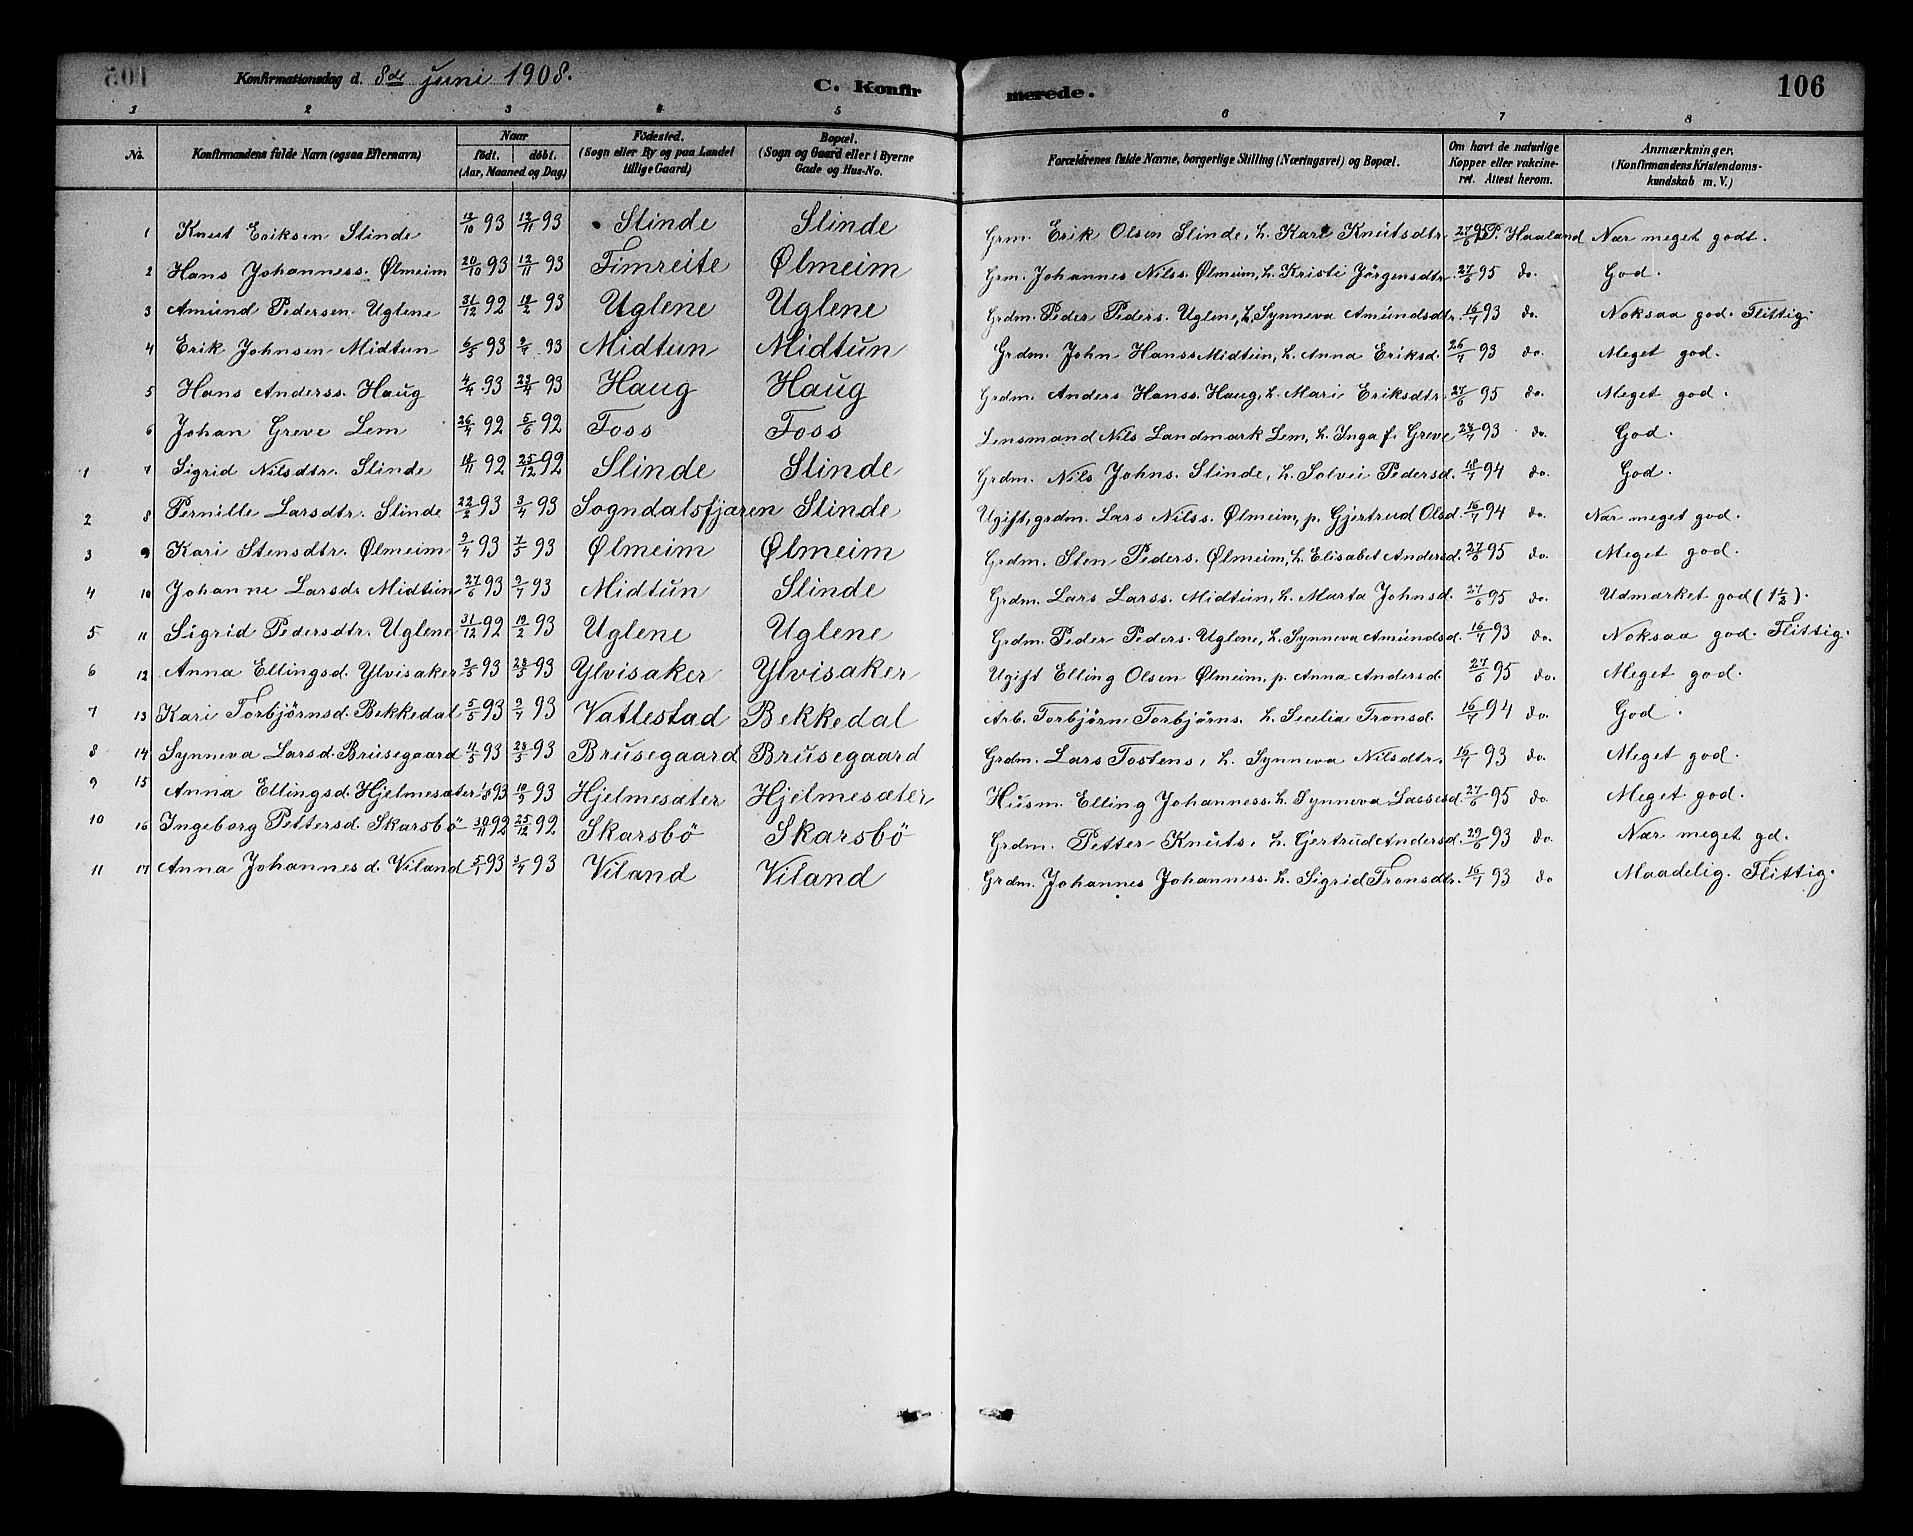 Konfirmationsdag d. 8de Juni 1908.
C. Konfirmerede.
106
1 2 3 4 5 6 7 8
No.
Konfirmandens fulde Navn (ogsaa Efternavn)
Naar
födt. döbt.
(Aar, Maaned og Dag)
Födested.
(Sogn eller By og paa Landet
tillige Gaard)
Bopæl.
(Sogn og Gaard eller i Byerne
Gade og Hus-No.
Forældrenes fulde Navne, borgerlige Stilling (Næringsvei) og Bopæl.
Om havt de naturlige
Kopper eller vakcine-
ret. Attest herom.
Anmærkninger.
(Konfirmandens Kristendoms-
kundskab m. V.)
1 Knut Eriksen Slinde 12/10 93 12/11 93 Slinde Slinde Grm. Erik Olsen Slinde, h. Kari Knutsdtr. 27/6 95 P. Haaland Nær meget godt.
2 Hans Johanness. Ølmeim 20/10 93 12/11 93 Fimreite Ølmeim Grm. Johannes Nilss. Ølmeim, h. Kristi Jörgensdtr. 27/6 95 do. God.
3 Amund Pedersen Uglene 31/12 92 19/2 93 Uglene Uglene Grdm. Peder Peders. Uglene, h. Synneva Amundsdtr. 16/7 93 do. Noksaa god. Flittig.
4 Erik Johnsen Midtun 6/5 93 9/7 93 Midtun Midtun Grdm. John Hanss Midtun, h. Anna Eriksd. 26/7 93 do. Meget god.
5 Hans Anderss. Haug 4/4 93 23/4 93 Haug Haug Grdm. Anders Hanss. Haug, h. Mari Eriksdtr. 27/6 95 do. Meget god.
6 Johan Greve Lem 26/4 92 5/6 92 Foss Foss Lensmand Nils Landmark Lem, h. Inga f. Greve 93 do. God.
1 7 Sigrid Nilsdtr. Slinde 18/11 92 25/12 92 Slinde Slinde Grdm. Nils Johns. Slinde, h. Solvei Pedersd. 18/7 94 do. God.
2 8 Pernille Larsdtr. Slinde 22/2 93 3/4 93 Sogndalsfjæren Slinde Ugift, grdm. Lars Nilss. Ølmeim, p. Gjertrud Olsd. 16/7 94 do. Nær meget god.
3 9 Kari Stensdtr. Ølmeim 9/4 93 7/5 93 Ølmeim Ølmeim Grdm. Sten Peders. Ølmeim, h. Elisabet Andersd. 27/6 95 do. Meget god.
4 10 Johanne Larsdr. Midtun 27/6 93 9/7 93 Midtun Slinde Grdm. Lars Larss. Midtun, h. Marta Johnsd. 27/6 95 do. Udmærket god (1 1/2).
5 11 Sigrid Pedersdtr. Uglene 31/12 92 19/2 93 Uglene Uglene Grdm. Peder Peders. Uglene, h. Synneva Amundsd. 16/7 93 do. Noksaa god. Flittig.
6 12 Anna Ellingsd. Ylvisaker 3/5 93 28/5 93 Ylvisaker Ylvisaker Ugift Elling Olsen Ølmeim, p. Anna Andersd. 27/6 95 do. Meget god.
7 13 Kari Torbjörnsd. Bekkedal 5/5 93 9/7 93 Vattestad Bekkedal Arb. Torbjörn Torbjörns. h. Secilia Tronsd. 16/7 94 do. God.
8 14 Synneva Larsd. Brusegaard 11/5 93 28/5 93 Brusegaard Brusegaard Grdm. Lars Tostens, h. Synneva Nilsdtr. 16/7 93 do. Meget god.
9 15 Anna Ellingsd. Hjelmesæter 1/8 93 10/9 93 Hjelmesæter Hjelmesæter Husm. Elling Johanness. h. Synneva Lassesd. 27/6 95 do. Meget god.
10 16 Ingeborg Pettersd. Skarsbö 30/11 92 25/12 92 Skarsbö Skarsbö Grdm. Petter Knuts, h. Gjertrud Andersd. 29/6 93 do. Nær meget gd.
11 17 Anna Johannesd. Viland 5/1 93 3/4 93 Viland Viland Grdm. Johannes Johanness. h. Sigrid Tronsdtr. 16/7 93 do Maadelig. Flittig.